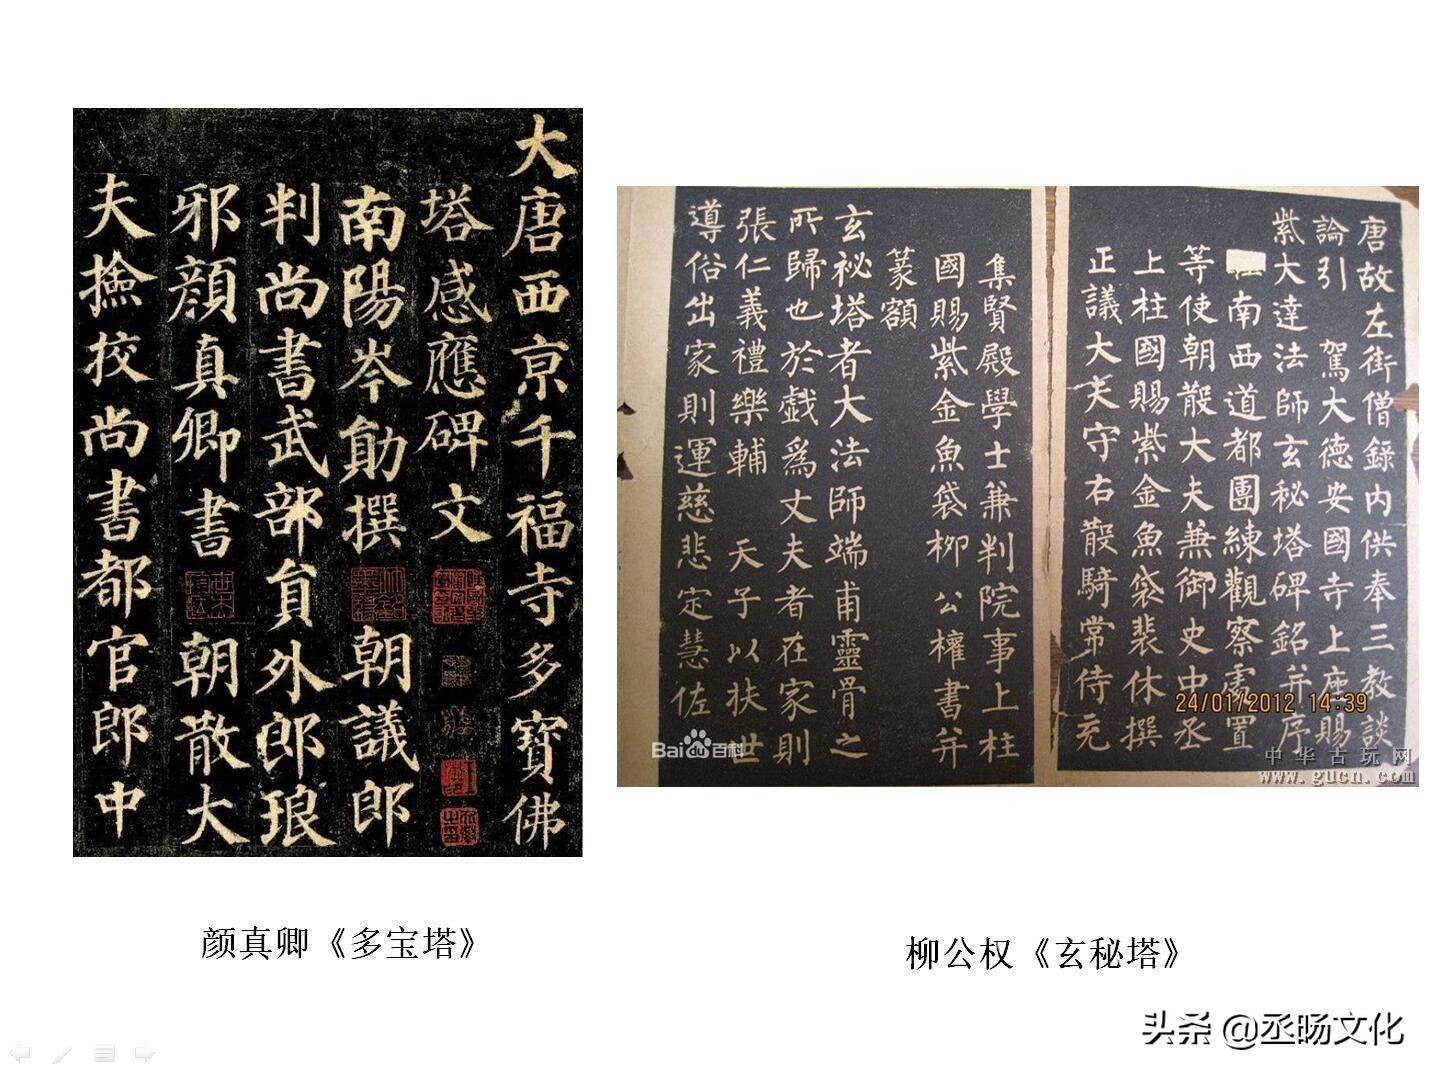 大唐西京千福寺多寶佛
塔感應碑文
南陽岑勛撰 朝議郎
判尚書武部員外郎琅
邪顏真卿書 朝散大
夫撿挍尚書都官郎中
唐故左街僧錄內供奉三教談
論引 駕大德安國寺上座賜
紫大達法師玄秘塔碑銘并序
南西道都團練觀察處置
等使朝散大夫兼御史中丞
上柱國賜紫金魚袋裴休撰
正議大夫守右散騎常侍充
集賢殿學士兼判院事上柱
國賜紫金魚袋柳公權書并
篆額
玄祕塔者大法師端甫靈骨之
所歸也於戲為丈夫者在家則
張仁義禮樂輔 天子以扶世
導俗出家則運慈悲定慧佐
24/01/2012 14:39
Bai du 百科
中华古玩网
www.gucn.com
颜真卿《多宝塔》
柳公权《玄秘塔》
头条 @丞旸文化